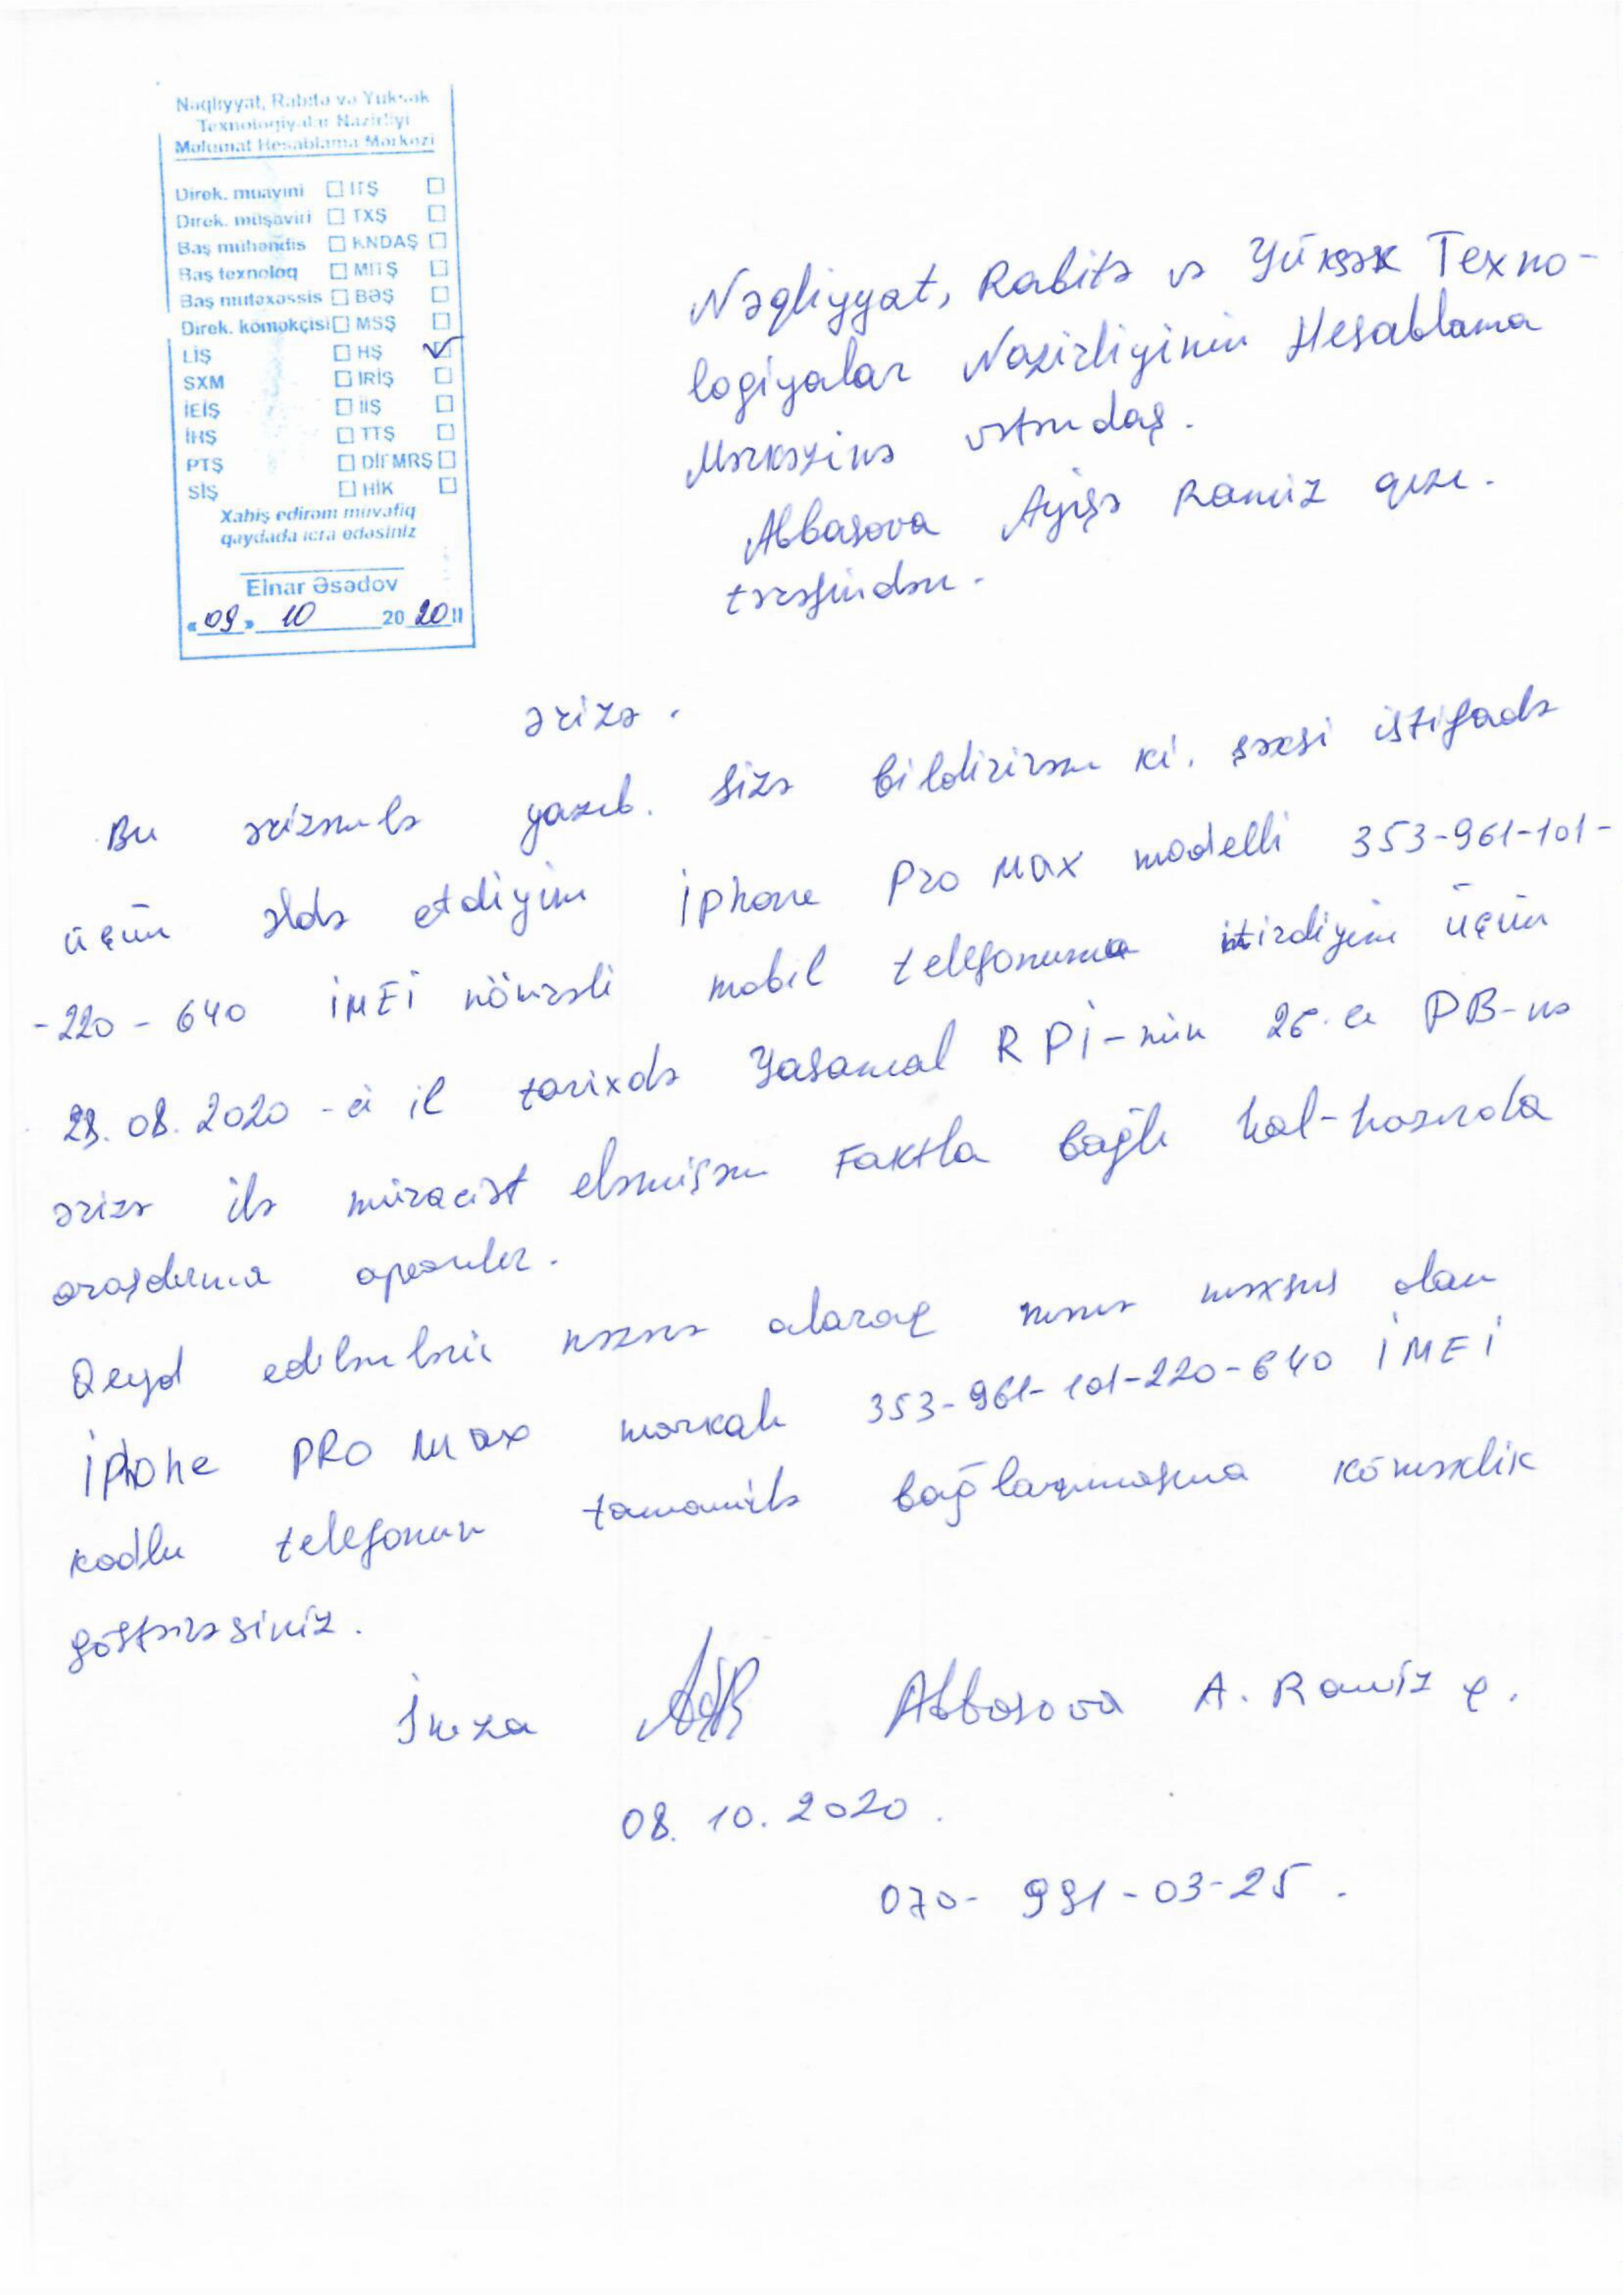 Nəqliyyat, Rabitə və Yüksək
Texnologiyalar Nazirliyi
Məlumat Hesablama Mərkəzi
Direk. müavini ☐ İTŞ ☐
Direk. müşaviri ☐ TXŞ ☐
Baş mühəndis ☐ KNDAŞ ☐
Baş texnoloq ☐ MITŞ ☐
Baş mütəxəssis ☐ BƏŞ ☐
Direk. köməkçisi ☐ MSŞ ☐
LİŞ ☐ HŞ ☑
SXM ☐ IRİŞ ☐
İEİŞ ☐ İİŞ ☐
İHŞ ☐ TTŞ ☐
PTŞ ☐ DİFMRŞ ☐
SİŞ ☐ HİK ☐
Xahiş edirəm müvafiq
qaydada icra edəsiniz
Elnar Əsədov
«09» 10 2020
Nəqliyyat, Rabitə və Yüksək Texno-
logiyalar Nazirliyinin Hesablama
Mərkəzinə vətəndaş.
Abbasova Ayişə Ramiz qızı.
tərəfindən.
ərizə.
Bu ərizəmlə yazıb. Sizə bildirirəm ki. şəxsi istifadə
üçün əldə etdiyim İphone Pro Max modelli 353-961-101-
-220-640 İMEİ nömrəli mobil telefonumu itirdiyim üçün
28.08.2020-ci il tarixdə Yasamal RPİ-nin 26-cı PB-nə
ərizə ilə müraciət eləmişəm Faktla bağlı hal-hazırda
araşdırma aparılır.
Qeyd edilənləri nəzərə alaraq mənə məxsus olan
İphone PRO Max markalı 353-961-101-220-640 İMEİ
kodlu telefonun tamamilə bağlanmasına köməklik
göstərəsiniz.
İmza Abbasova A. Ramiz q.
08.10.2020.
070-991-03-25.